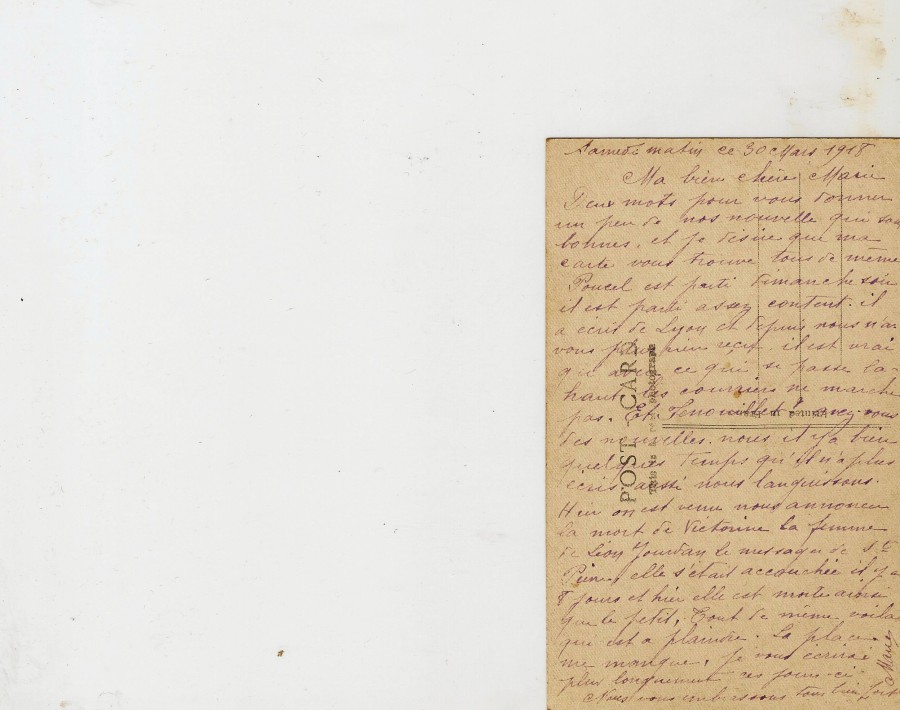 Samedi matin ce 30 Mars 1918
Ma bien chère Marie
Deux mots pour vous donner
un peu de nos nouvelle qui son
bonnes, et je désire que ma
carte vous trouve tous de même
Poucel est parti dimanche soir
il est parti assez content. il
a écris de Lyon et depuis nous n'a-
vons plus rien reçut. il est vrai
qu'avec ce qui se passe la-
haut les courriers ne marche
pas. Et Fenouillet! avez vous
des nouvelles. nous il y a bien
quelques temps qu'il n'a plus
écris aussi nous languissons.
Hier on est venu nous annoncer
la mort de Victorine la femme
de Léon Jourdan le messager de St
elle s'était accouchée il y a
8 jours et hier elle est morte ainsi
que le petit, Tout de même voila
que est a plaindre. La place
me manque, je vous écrirai
plus longuement ces jours-ci
Nous vous embrassons tous bien fort
POST CARD